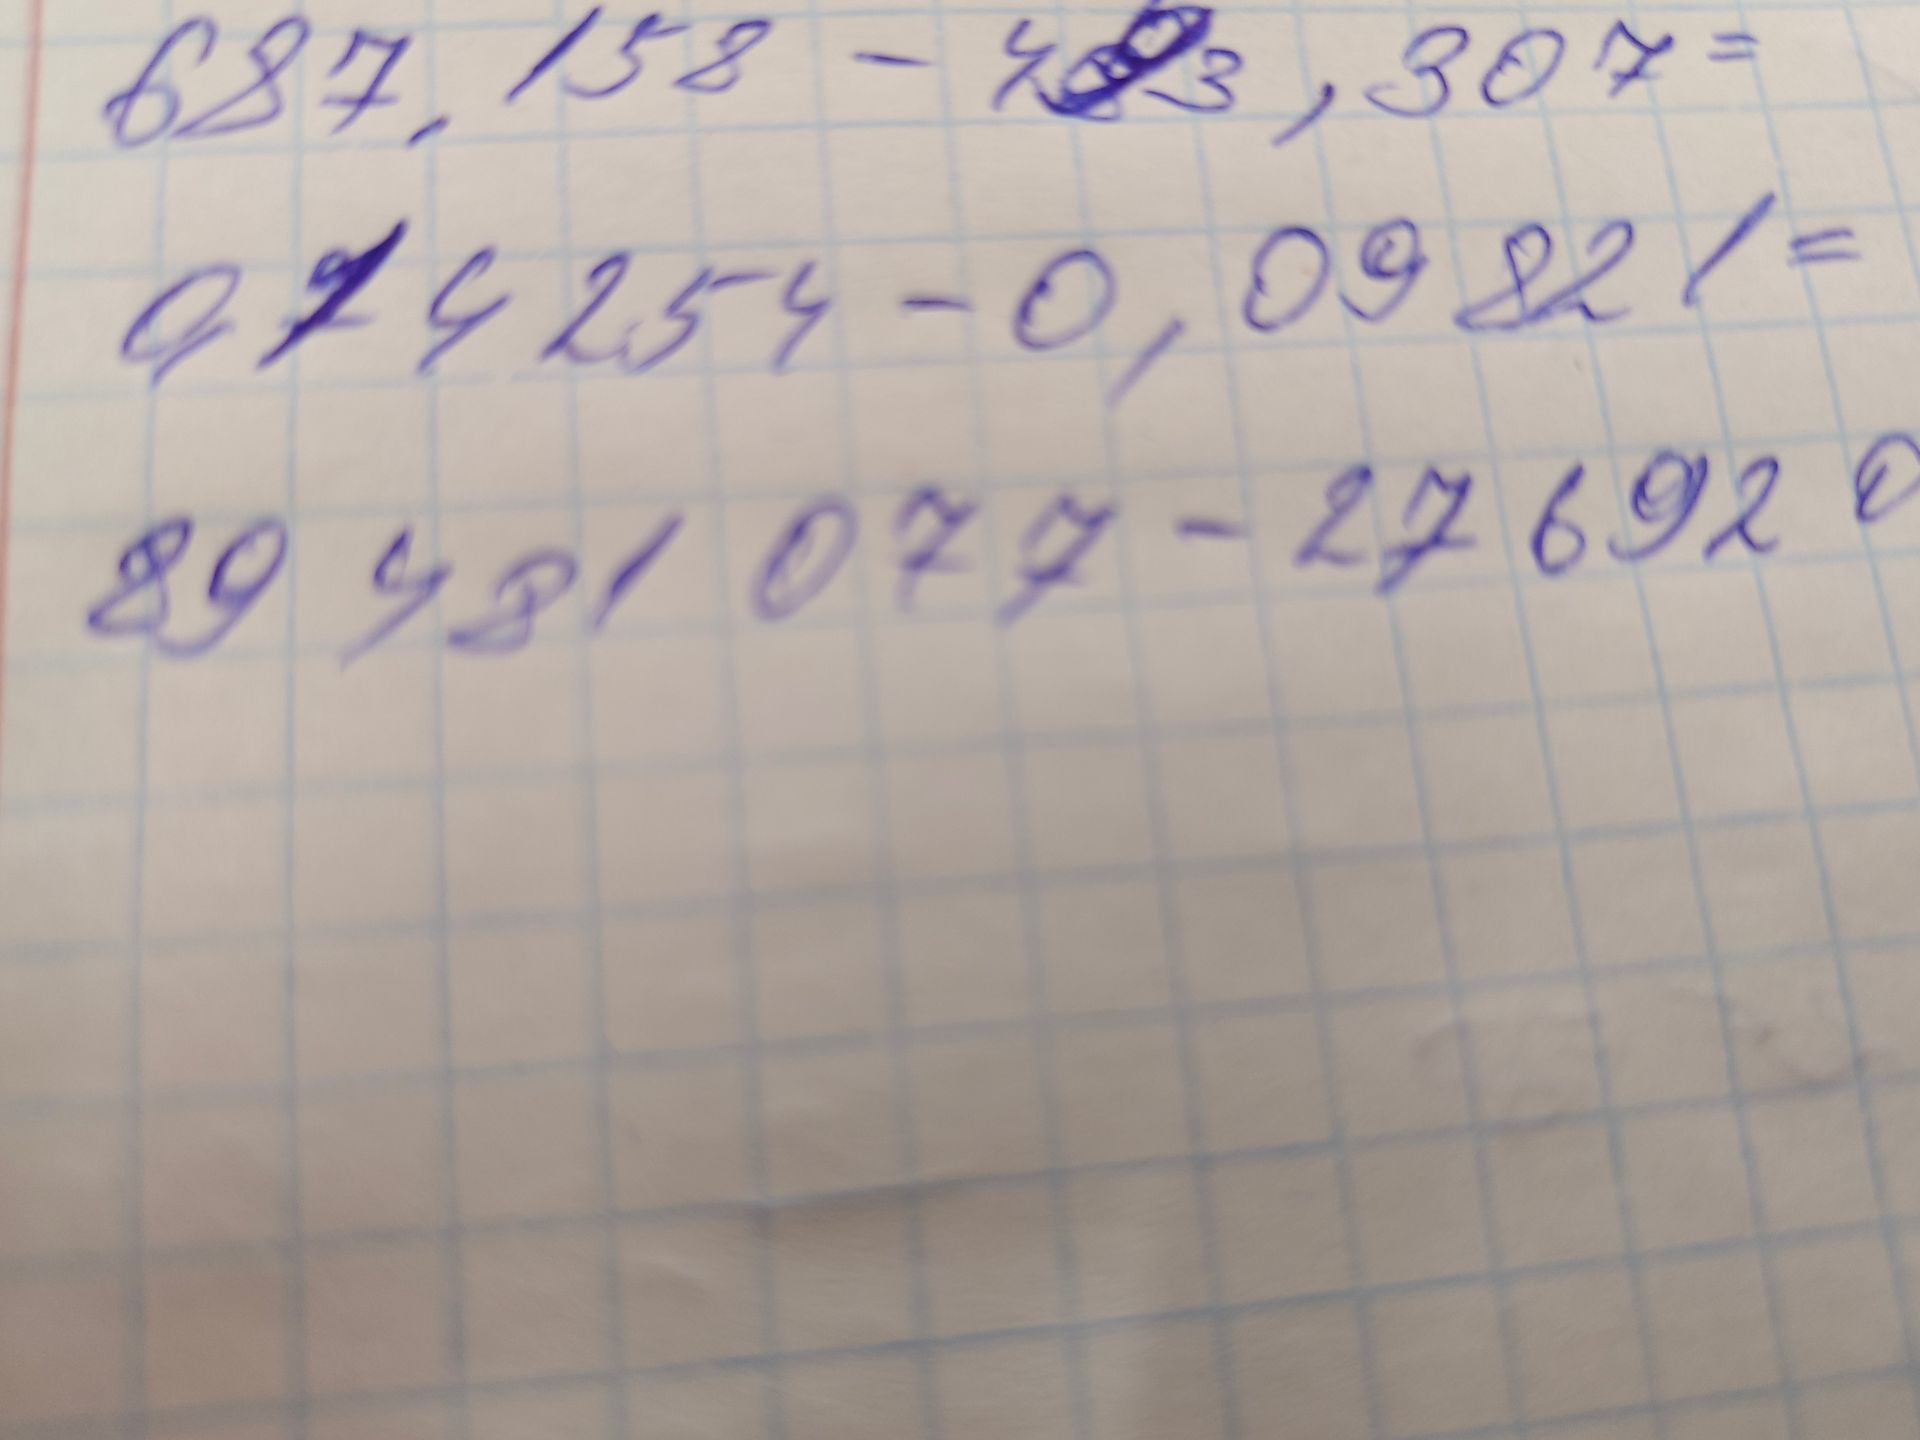 687,158 - 493,307=
0,74254-0,09821=
89 481 077-27 692 0